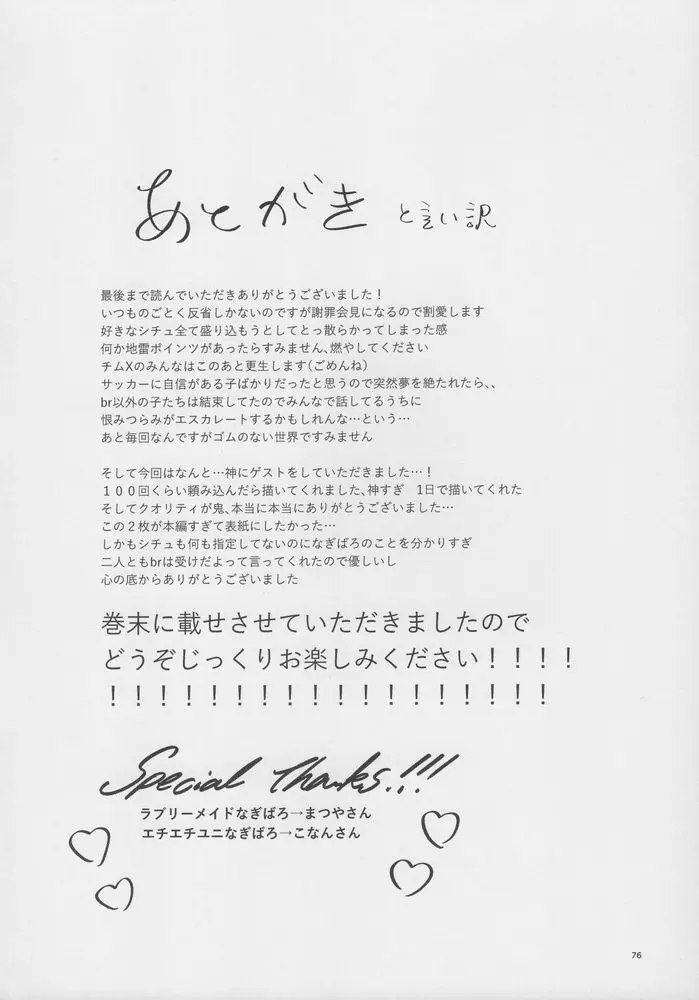 あとがき と言い訳
最後まで読んでいただきありがとうございました！
いつものごとく反省しかないのですが謝罪会見になるので割愛します
好きなシチュ全て盛り込もうとしてとっ散らかってしまった感
何か地雷ポインツがあったらすみません、燃やしてください
チムXのみんなはこのあと更生します(ごめんね)
サッカーに自信がある子ばかりだったと思うので突然夢を絶たれたら、、
br以外の子たちは結束してたのでみんなで話してるうちに
恨みつらみがエスカレートするかもしれんな…という…
あと毎回なんですがゴムのない世界ですみません
そして今回はなんと…神にゲストをしていただきました…！
１００回くらい頼み込んだら描いてくれました、神すぎ　1日で描いてくれた
そしてクオリティが鬼、本当に本当にありがとうございました…
この２枚が本編すぎて表紙にしたかった…
しかもシチュも何も指定してないのになぎばろのことを分かりすぎ
二人ともbrは受けだよって言ってくれたので優しいし
心の底からありがとうございました
巻末に載せさせていただきましたので
どうぞじっくりお楽しみください！！！！
！！！！！！！！！！！！！！！！！！
Special thanks!!!
ラブリーメイドなぎばろ→まつやさん
エチエチユニなぎばろ→こなんさん
76